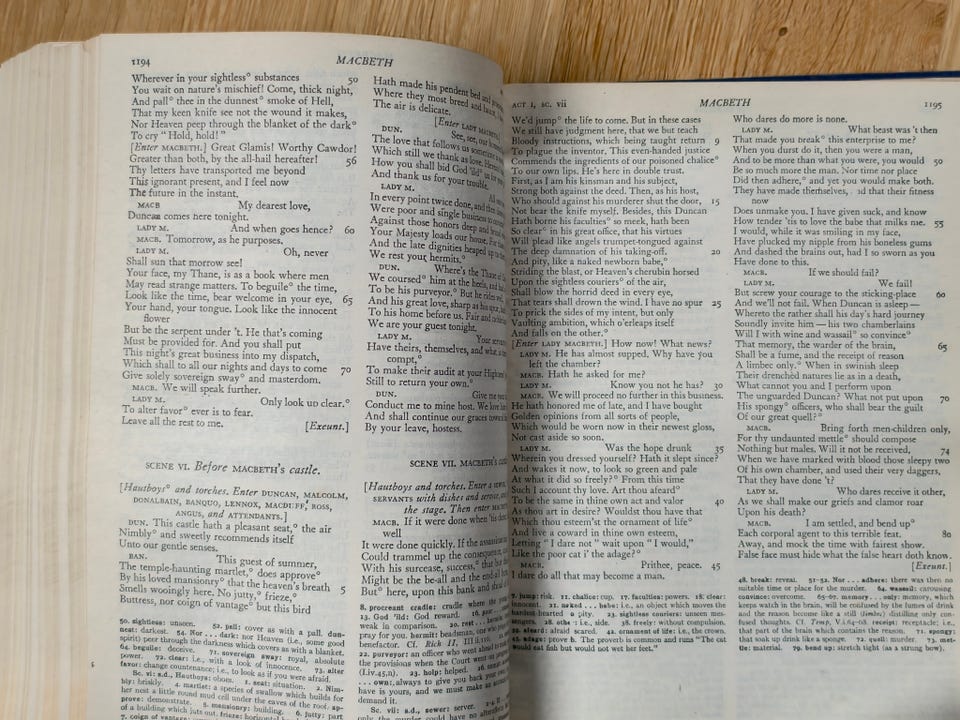 1194 MACBETH
Wherever in your sightless° substances 50
You wait on nature's mischief! Come, thick night,
And pall° thee in the dunnest° smoke of Hell,
That my keen knife see not the wound it makes,
Nor Heaven peep through the blanket of the dark°
To cry "Hold, hold!"
[Enter MACBETH.] Great Glamis! Worthy Cawdor!
Greater than both, by the all-hail hereafter! 56
Thy letters have transported me beyond
This ignorant present, and I feel now
The future in the instant.
MACB My dearest love,
Duncan comes here tonight.
LADY M. And when goes hence? 60
MACB. Tomorrow, as he purposes.
LADY M. Oh, never
Shall sun that morrow see!
Your face, my Thane, is as a book where men
May read strange matters. To beguile° the time,
Look like the time, bear welcome in your eye, 65
Your hand, your tongue. Look like the innocent
flower
But be the serpent under 't. He that's coming
Must be provided for. And you shall put
This night's great business into my dispatch,
Which shall to all our nights and days to come 70
Give solely sovereign sway° and masterdom.
MACB. We will speak further.
LADY M. Only look up clear.°
To alter favor° ever is to fear.
Leave all the rest to me. [Exeunt.]
SCENE VI. Before MACBETH's castle.
[Hautboys° and torches. Enter DUNCAN, MALCOLM,
DONALBAIN, BANQUO, LENNOX, MACDUFF, ROSS,
ANGUS, and ATTENDANTS.]
DUN. This castle hath a pleasant seat,° the air
Nimbly° and sweetly recommends itself
Unto our gentle senses.
BAN. This guest of summer,
The temple-haunting martlet,° does approve°
By his loved mansionry° that the heaven's breath 5
Smells wooingly here. No jutty,° frieze,°
Buttress, nor coign of vantage° but this bird
50. sightless: unseen. 52. pall: cover as with a pall. dunnest: darkest. 54. Nor . . . dark: nor Heaven (i.e., some good
spirit) peer through the darkness which covers as with a blanket.
64. beguile: deceive. 71. sovereign sway: royal, absolute
power. 72. clear: i.e., with a look of innocence. 73. alter
favor: change countenance; i.e., to look as if you were afraid.
Sc. vi: s.d., Hautboys: oboes. 1. seat: situation. 2. Nimbly: briskly. 4. martlet: a species of swallow which builds for
her nest a little round mud cell under the eaves of the roof. approve: demonstrate. 5. mansionry: building. 6. jutty: part
of a building which juts out. frieze:
7. coign of vantage:
Hath made his pendent bed and
Where they most breed and
The air is delicate.
[Enter LADY MACBETH.]
DUN. See, see, our
The love that follows us
Which still we thank as love.
How you shall bid God 'ild°
And thank us for your trouble.
LADY M. All
In every point twice done, and
Were poor and single business to
Against those honors deep and
Your Majesty loads our house. For
And the late dignities heaped up
We rest your hermits.°
DUN. Where's the Thane of
We coursed° him at the heels, and
To be his purveyor.° But he rides
And his great love, sharp as his spur,
To his home before us. Fair and
We are your guest tonight,
LADY M. Your
Have theirs, themselves, and what
compt,°
To make their audit at your Highness'
Still to return your own.°
DUN. Give me
Conduct me to mine host. We love
And shall continue our graces
By your leave, hostess.
SCENE VII. MACBETH's
[Hautboys and torches. Enter a
SERVANTS with dishes and service,
the stage. Then enter
MACB. If it were done when 'tis
well
It were done quickly. If the
Could trammel up the consequence,
With his surcease, success,° that
Might be the be-all and the end-all
But° here, upon this bank and
8. procreant cradle: cradle where
13. God 'ild: God reward.
weak in comparison. 20. rest
pray for you. hermit: beadsman, one
benefactor. Cf. Rich II, III.
22. purveyor: an officer who went ahead
the provisions when the Court went
(I.iv.45,n). 23. holp: helped.
. . . own: always to give you back your
have is yours, and we must make an
demand it.
Sc. vii: s.d., sewer: server.
ACT I, SC. vii MACBETH 1195
We'd jump° the life to come. But in these cases
We still have judgment here, that we but teach
Bloody instructions, which being taught return 9
To plague the inventor. This even-handed justice
Commends the ingredients of our poisoned chalice°
To our own lips. He's here in double trust.
First, as I am his kinsman and his subject,
Strong both against the deed. Then, as his host,
Who should against his murderer shut the door, 15
Not bear the knife myself. Besides, this Duncan
Hath borne his faculties° so meek, hath been
So clear° in his great office, that his virtues
Will plead like angels trumpet-tongued against
The deep damnation of his taking-off. 20
And pity, like a naked newborn babe,°
Striding the blast, or Heaven's cherubin horsed
Upon the sightless couriers° of the air,
Shall blow the horrid deed in every eye,
That tears shall drown the wind. I have no spur 25
To prick the sides of my intent, but only
Vaulting ambition, which o'erleaps itself
And falls on the other.°
[Enter LADY MACBETH.] How now! What news?
LADY M. He has almost supped. Why have you
left the chamber?
MACB. Hath he asked for me?
LADY M. Know you not he has? 30
MACB. We will proceed no further in this business.
He hath honored me of late, and I have bought
Golden opinions from all sorts of people,
Which would be worn now in their newest gloss,
Not cast aside so soon.
LADY M. Was the hope drunk 35
Wherein you dressed yourself? Hath it slept since?
And wakes it now, to look so green and pale
At what it did so freely?° From this time
Such I account thy love. Art thou afeard°
To be the same in thine own act and valor 40
As thou art in desire? Wouldst thou have that
Which thou esteem'st the ornament of life°
And live a coward in thine own esteem,
Letting "I dare not" wait upon "I would,"
Like the poor cat i' the adage?°
MACB. Prithee, peace. 45
I dare do all that may become a man.
7. jump: risk. 11. chalice: cup. 17. faculties: powers. 18. clear:
innocent. 21. naked . . . babe: i.e., an object which moves the
hardest-hearted to pity. 23. sightless couriers: unseen messengers. 28. other: i.e., side. 38. freely: without compulsion.
39. afeard: afraid scared. 42. ornament of life: i.e., the crown.
45. adage: prove b. The proverb is common and runs "The cat
would eat fish but would not wet her feet."
Who dares do more is none.
LADY M. What beast was 't then
That made you break° this enterprise to me?
When you durst do it, then you were a man,
And to be more than what you were, you would 50
Be so much more the man. Nor time nor place
Did then adhere,° and yet you would make both.
They have made themselves, and that their fitness
now
Does unmake you. I have given suck, and know
How tender 'tis to love the babe that milks me. 55
I would, while it was smiling in my face,
Have plucked my nipple from his boneless gums
And dashed the brains out, had I so sworn as you
Have done to this.
MACB. If we should fail?
LADY M. We fail!
But screw your courage to the sticking-place 60
And we'll not fail. When Duncan is asleep—
Whereto the rather shall his day's hard journey
Soundly invite him—his two chamberlains
Will I with wine and wassail° so convince°
That memory, the warder of the brain, 65
Shall be a fume, and the receipt of reason
A limbec only.° When in swinish sleep
Their drenchèd natures lie as in a death,
What cannot you and I perform upon
The unguarded Duncan? What not put upon 70
His spongy° officers, who shall bear the guilt
Of our great quell?°
MACB. Bring forth men-children only,
For thy undaunted mettle° should compose
Nothing but males. Will it not be received, 74
When we have marked with blood those sleepy two
Of his own chamber, and used their very daggers,
That they have done 't?
LADY M. Who dares receive it other,
As we shall make our griefs and clamor roar
Upon his death?
MACB. I am settled, and bend up°
Each corporal agent to this terrible feat. 80
Away, and mock the time with fairest show.
False face must hide what the false heart doth know.
[Exeunt.]
48. break: reveal. 51–52. Nor . . . adhere: there was then no
suitable time or place for the murder. 64. wassail: carousing
convince: overcome. 65–67. memory . . . only: memory, which
keeps watch in the brain, will be confused by the fumes of drink
and the reason become like a still (limbec) distilling only confused thoughts. Cf. Temp, V.i.64–68. receipt: receptacle; i.e.,
that part of the brain which contains the reason. 71. spongy:
that soak up drink like a sponge. 72. quell: murder. 73. mettle: material. 79. bend up: stretch tight (as a strung bow).